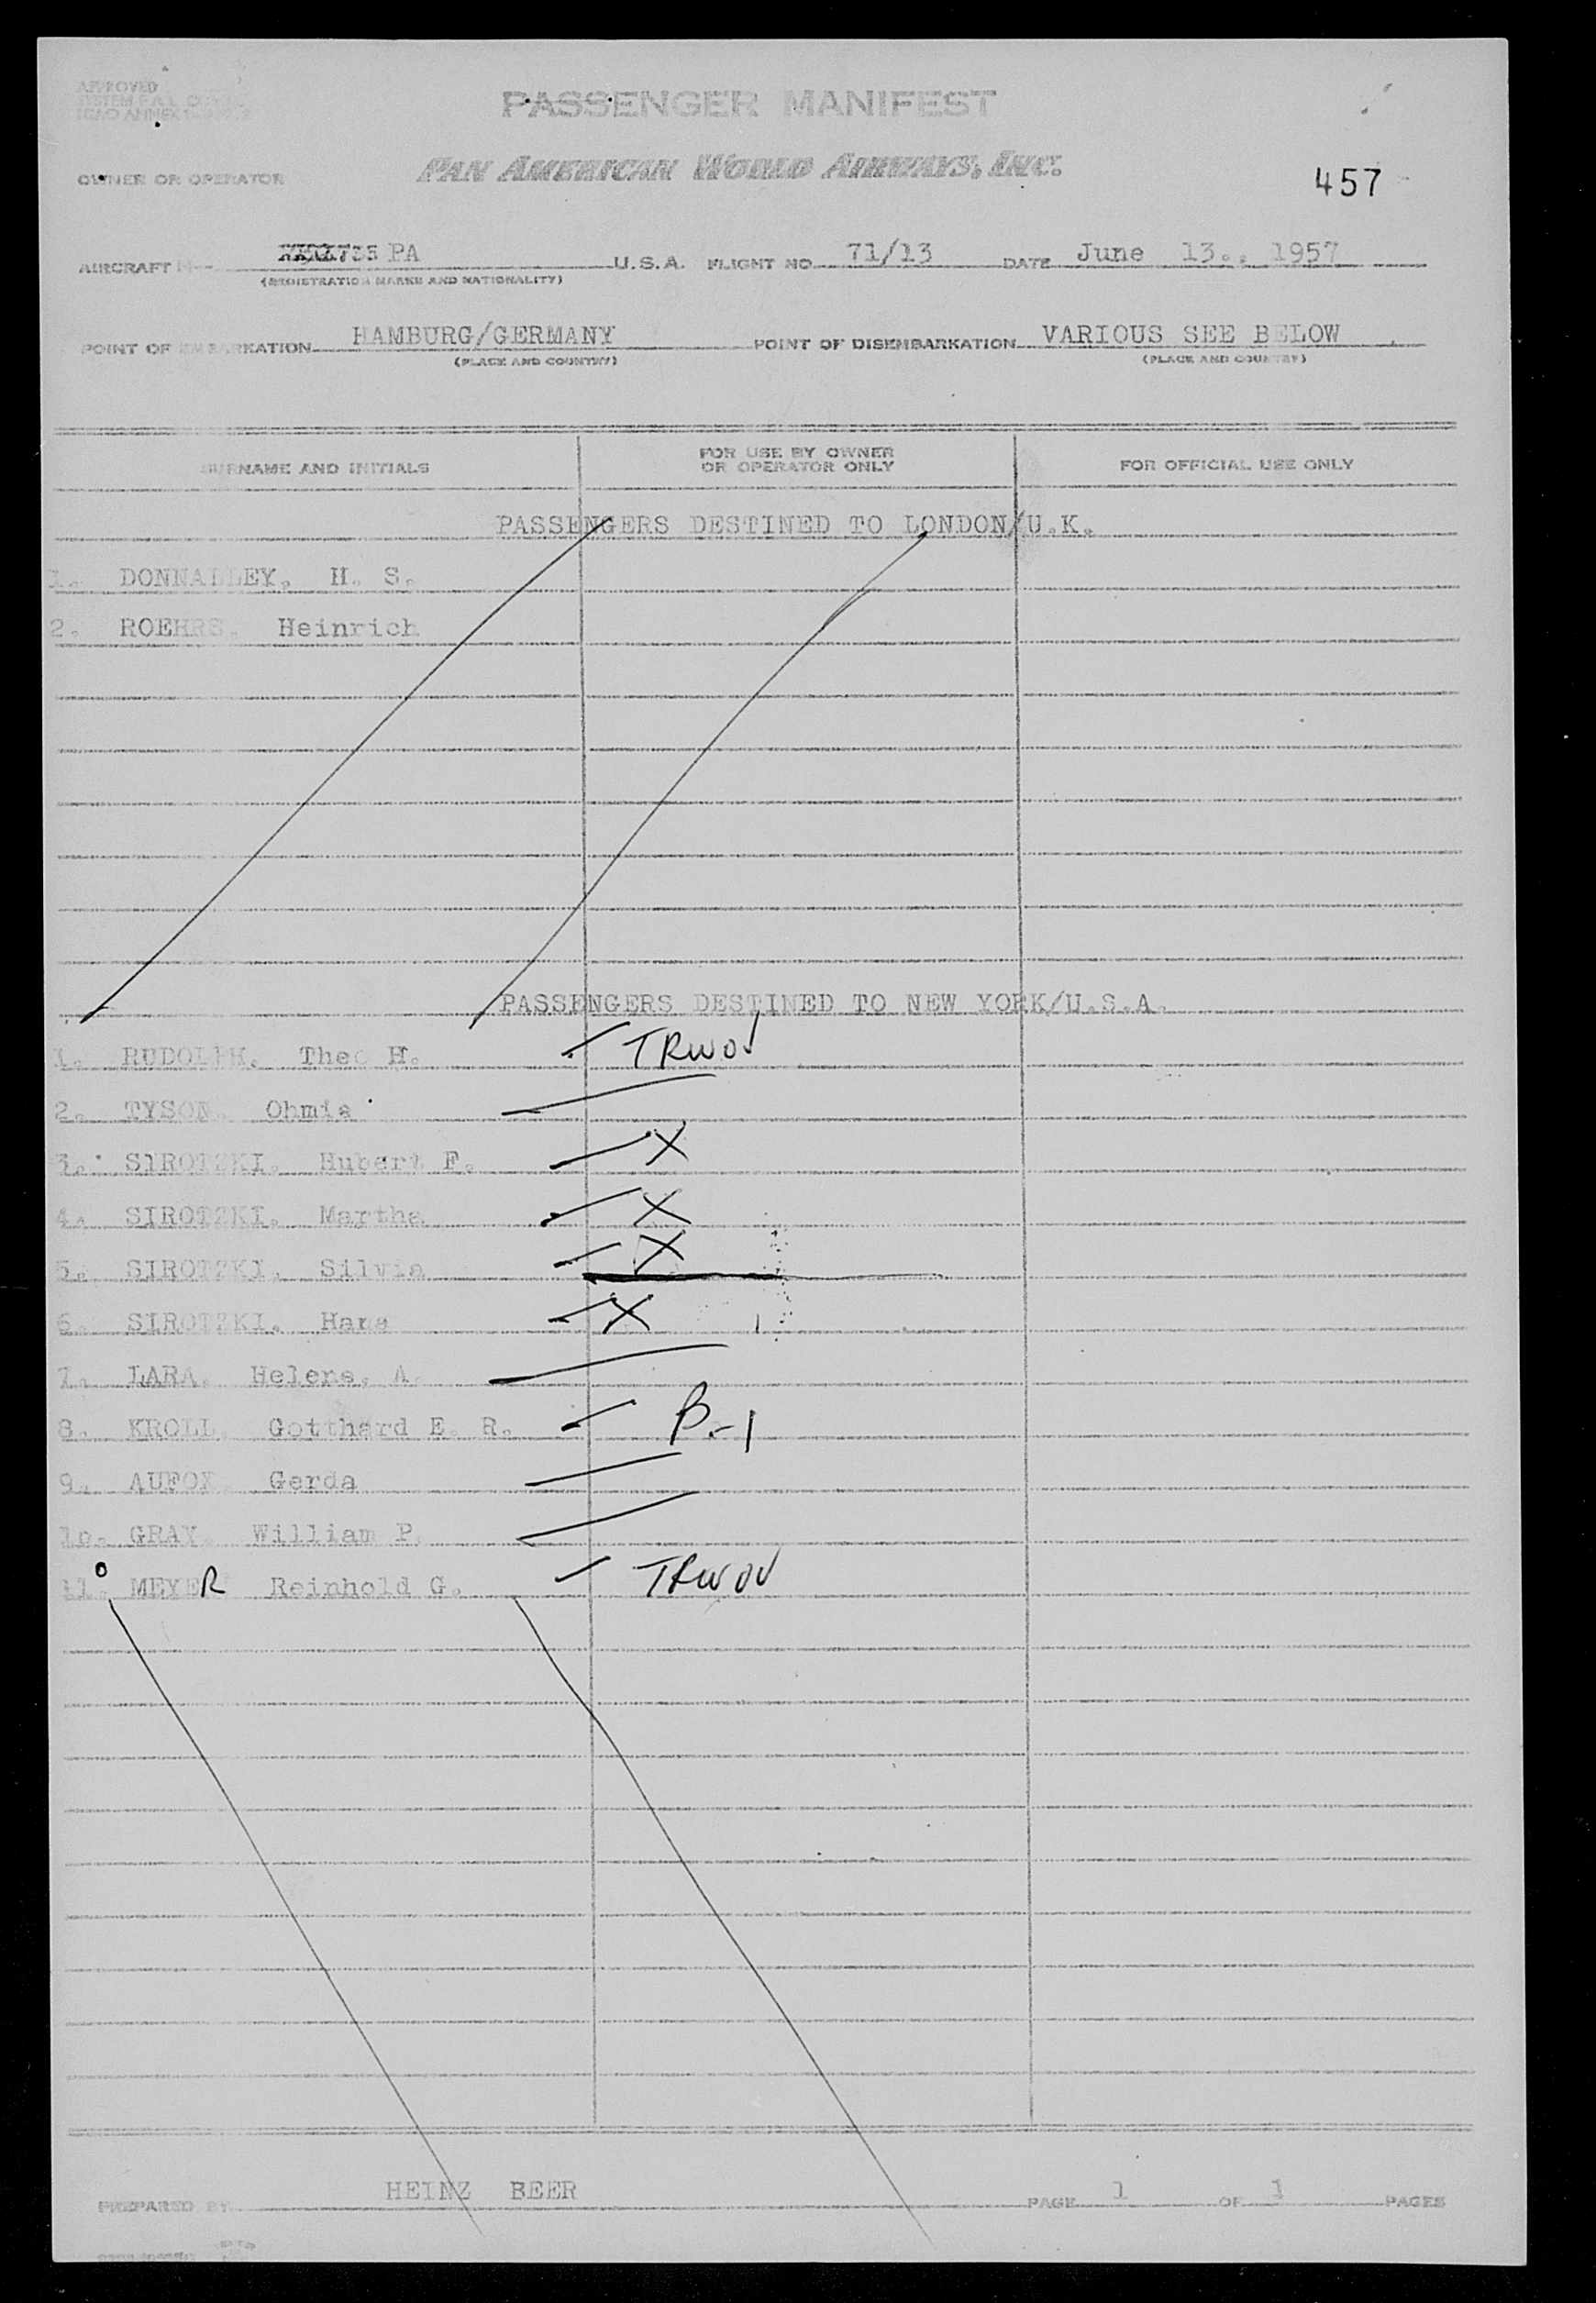 APPROVED
PASSENGER MANIFEST
PAN AMERICAN WORLD AIRWAYS, INC.
OWNER OR OPERATOR
457
AIRCRAFT PA U.S.A. FLIGHT NO 71/13 DATE June 13., 1957
(REGISTRATION MARKS AND NATIONALITY)
POINT OF EMBARKATION HAMBURG/GERMANY POINT OF DISEMBARKATION VARIOUS SEE BELOW
(PLACE AND COUNTRY) (PLACE AND COUNTRY)
SURNAME AND INITIALS FOR USE BY OWNER OR OPERATOR ONLY FOR OFFICIAL USE ONLY
PASSENGERS DESTINED TO LONDON/U.K.
1. DONNALLEY, H. S.
2. ROEHRS, Heinrich
PASSENGERS DESTINED TO NEW YORK/U.S.A.
1. RUDOLPH, Theo H. TRWOV
2. TYSON, Ohmia
3. SIROTZKI, Hubert F. X
4. SIROTZKI, Martha X
5. SIROTZKI, Silvia X
6. SIROTZKI, Hans X
7. LARA, Helene, A.
8. KROLL, Gotthard E. R. B-1
9. AUFOX, Gerda
10. GRAY, William P.
11. MEYER Reinhold G. TRWOV
PREPARED BY HEINZ BEER PAGE 1 OF 1 PAGES